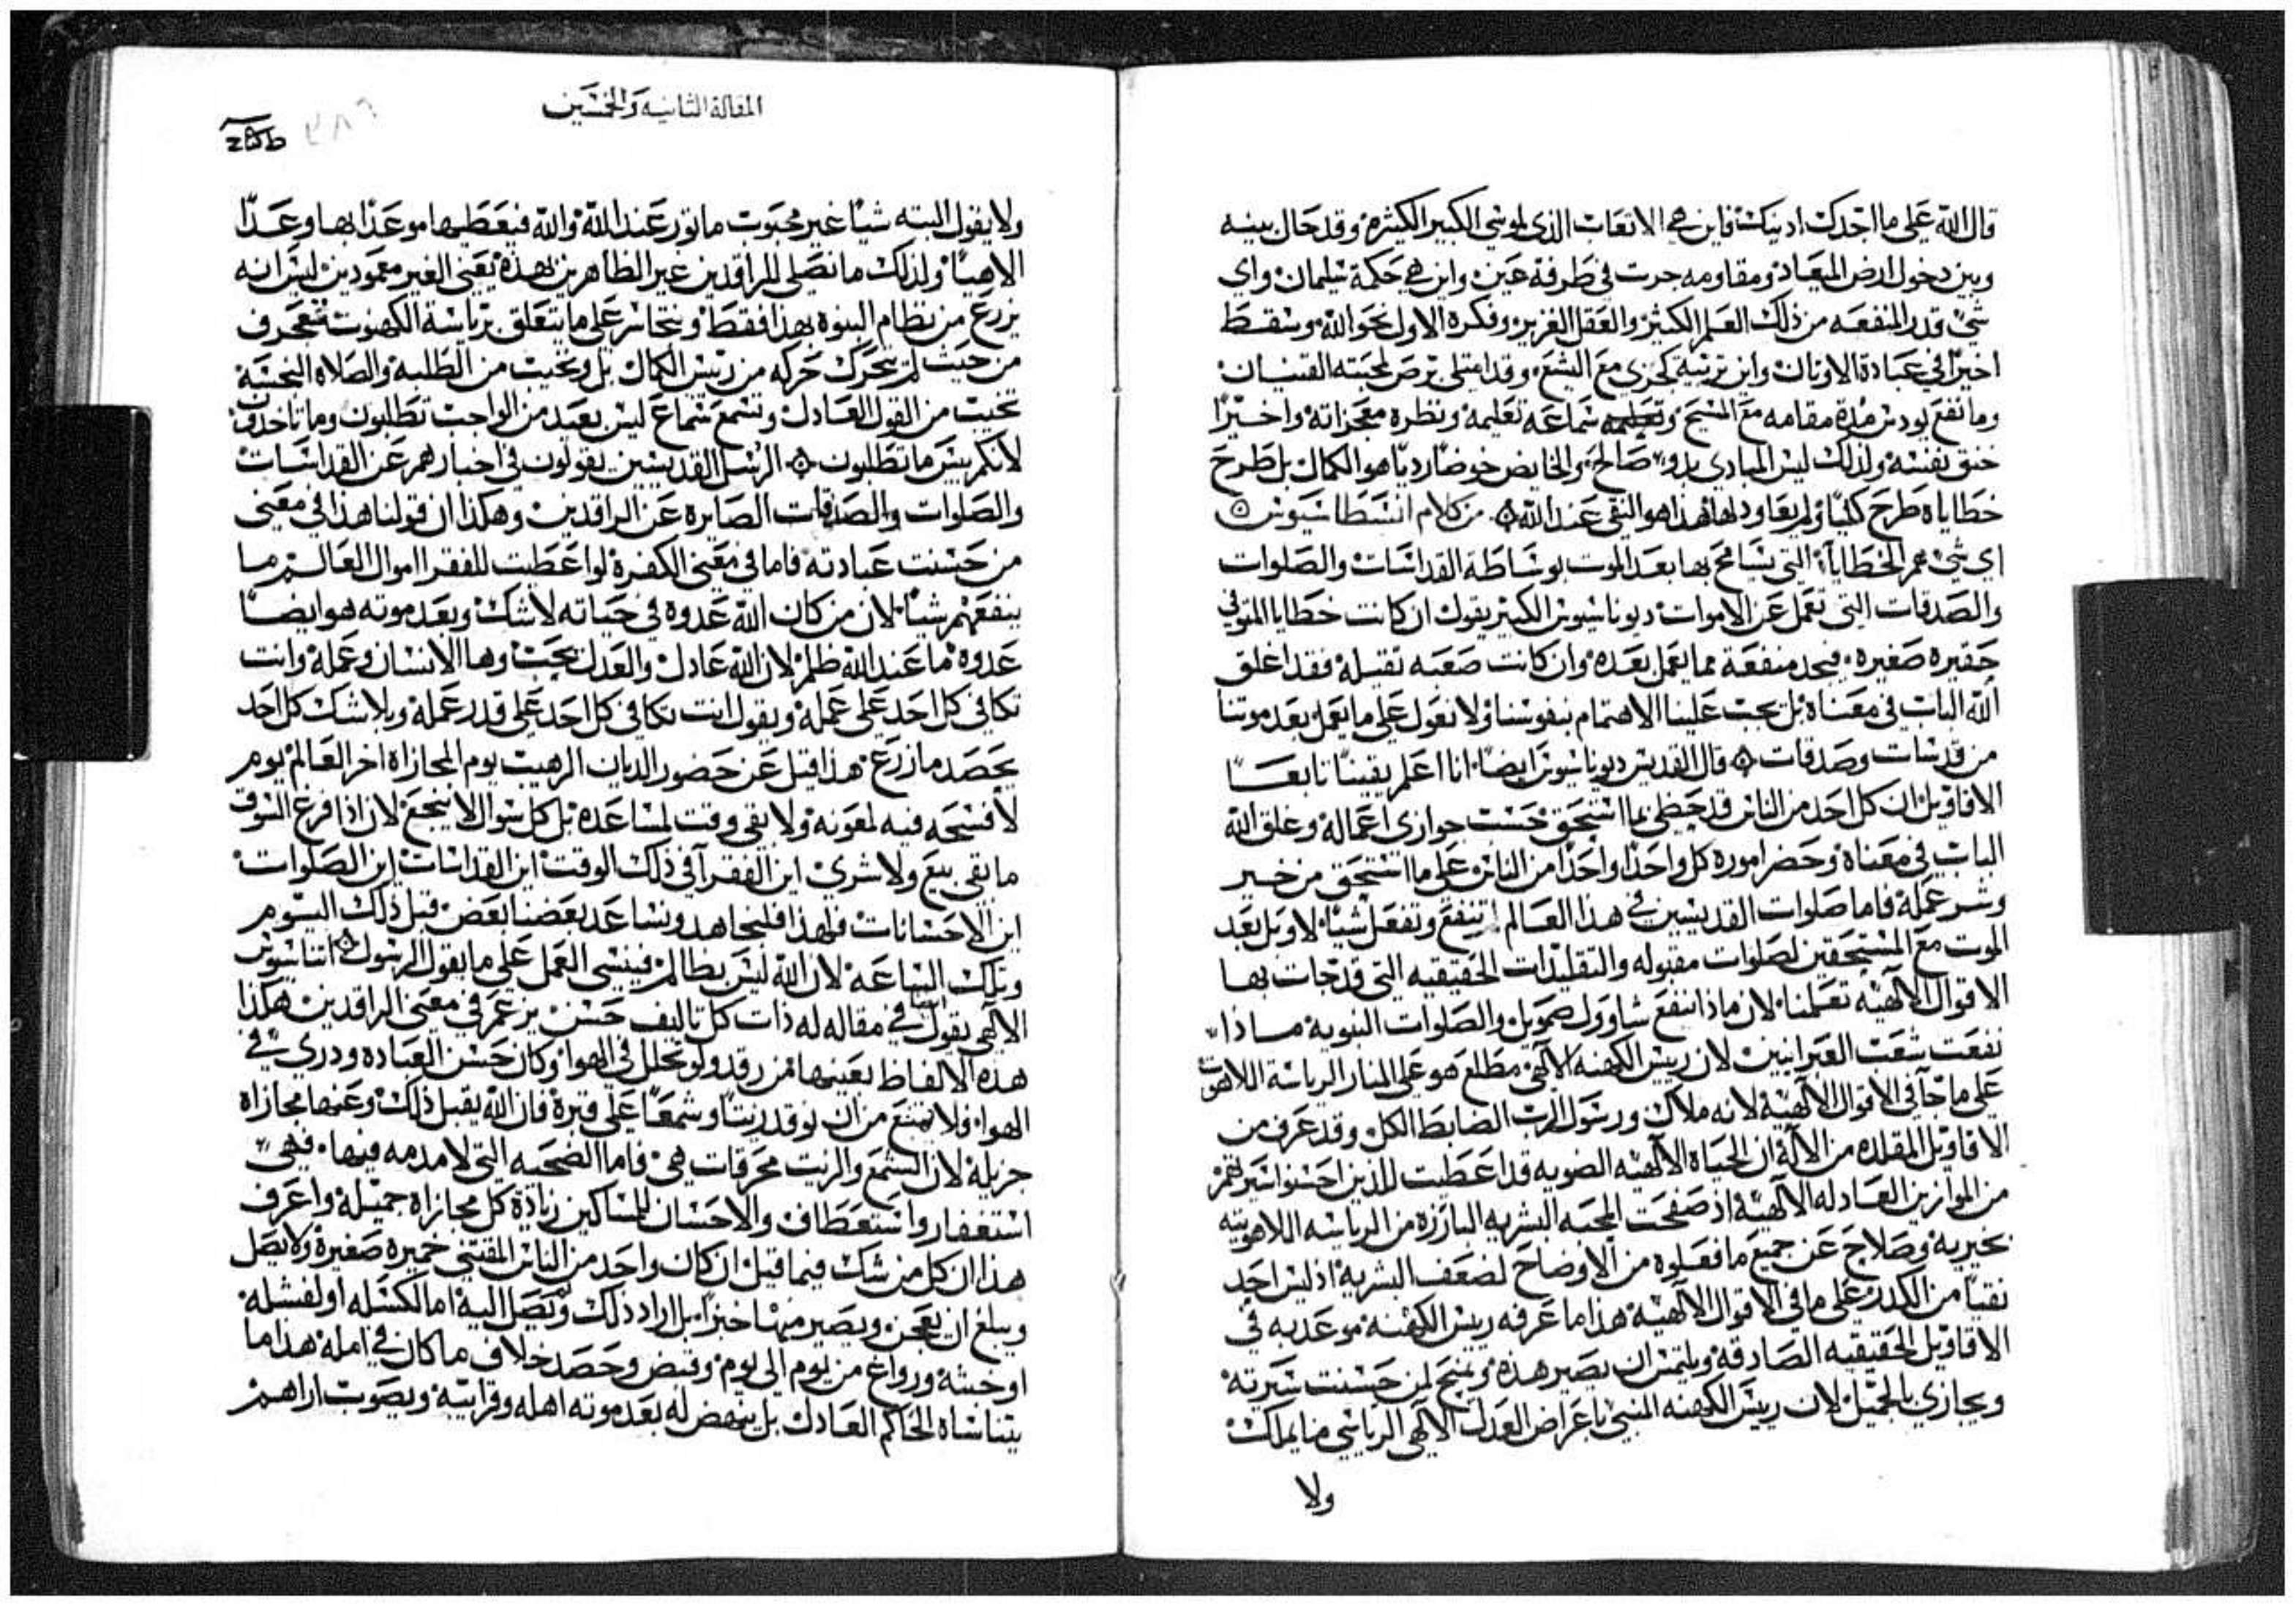 قال الله على ما اجدك ادينك فاين هي الاتعاب الذي لموسي الكبير الكثيره وقد حال بينه
وبين دخول ارض الميعاد ومقاومه جرت في طرفة عين واين هي حكمة سليمان واي
شي قدر المنفعه من ذلك العلم الكثير والعقل الغزير وفكره الاول نحو الله وسقط
اخيرًا في عبادة الاوثان واين ترتيبه كجزي مع الشع وقد امتلي برص لمحبته القنيان
وما نفع يودس مدة مقامه مع المسيح وتعليمه سماعه تعليمه ونظره معجزاته واخيرًا
خنق نفسه ولذلك ليس المبادي بدو صالح والخايض خوضًا رديًا هو الكمال بل طرح
خطاياه طرح كليًا ولم يعاود لها فهذا هو النقي عند الله من كلام انسطاسيوس
اي شي هم الخطايا التي يسامح بها بعد الموت بوساطة القداسات والصلوات
والصدقات التي تعمل عن الاموات ديوناسيوس الكبير يقول ان كانت خطايا المتوفي
حقيره صغيره فيجد منفعة مما يعمل بعده وان كانت صعبه ثقيله فقد اغلق
الله الباب في معناه بل يجب علينا الاهتمام بنفوسنا ولا نعول على ما يعمل بعد موتنا
من قدسات وصدقات قال القديس ديوناسيوس ايضًا انا اعلم يقينًا تابعًا
الاقاويل ان كل احد من الناس قد حظي بما استحق حسب جوازي اعماله وغلق الله
الباب في معناه وحضر اموره كل واحدًا واحدًا من الناس على ما استحق من خير
وشر عمله فاما صلوات القديسين في هذا العالم تنفع وتفعل شيًا لا وبل بعد
الموت مع المستحقين لصلوات مقبوله والتقليدات الحقيقيه التي قد جات بها
الاقوال الالهيه تعلمنا لان ماذا انتفع شاوول صمويل والصلوات النبويه ماذا
نفعت شعب العبرانيين لان رييس الكهنه الالهي مطلع هو على المنار الرياسة اللاهوتيه
على ما جا في الاقوال الالهية لانه ملاك ورسول الرب الضابط الكل وقد عرف من
الاقاويل المقلده من الاله ان الحياه الالهيه الضويه قد اعطيت للذين احسنوا سيرتهم
من الموازين العادله الالهية اذ صفحت المحبه البشريه البارزه من الرياسه اللاهوتيه
بخيريه وصلاح عن جميع ما فعلوه من الاوضاح لضعف البشريه اذ ليس احد
نقيًا من الكدر على ما في الاقوال الالهية هذا ما عرفه رييس الكهنه موعد به في
الاقاويل الحقيقيه الصادقه ويلتمس ان يصير هذه ويمنح لمن حسنت سيرته
ويجازي بالجميل لان رييس الكهنه المنبي باعراض العدل الالهي الرياسي ما يملك
ولا
المقالة الثانيه والخمسين
ولا يقول البته شيًا غير محبوب ماثور عند الله والله فيعطيها موعدًا بها وعدًا
الاهيًا ولذلك ما نصلي للراقدين غير الطاهرين بهذه يعني الغير معمودين ليس انه
يزرع من نظام النبوه بهذا فقط ويتجاسر على ما يتعلق برياسة الكهنوت متعجرف
من حيث لم يتحرك حركه من رييس الكمال بل ويخيب من الطلبه والصلاه النجسه
يخيب من القول العادل وتسمع سماعًا ليس بعيد من الواجب تطلبون وما تاخذون
لانكم بيس ما تطلبون الرسل القديسين يقولون في اخبارهم عن القداسات
والصلوات والصدقات الصايره عن الراقدين وهكذا ان قولنا هذا في معني
من حسنت عبادته فاما في معني الكفره لو اعطيت للفقرا اموال العالم ما
ينفعهم شيًا لان من كان الله عدوه في حياته لا شك وبعد موته هو ايضًا
عدوه ما عند الله ظلم لان الله عادل والعدل يحب وها الانسان وعمله وانت
تكافي كل احد على عمله ويقول انت تكافي كل احد على قدر عمله وبلا شك كل احد
يحصد ما زرع هذا قيل عن حضور الديان الرهيب يوم المجازاه اخر العالم يوم
لا فسحه فيه لمعونه ولا بقي وقت لمساعده بل كل سوال لا ينجع لان اذا فرغ السوق
ما بقي بيع ولا شري اين الفقرا في ذلك الوقت اين القداسات اين الصلوات
اين الاحسانات فلهذا فلنجاهد ونساعد بعضنا بعض قبل ذلك اليوم
وتلك الساعه لان الله ليس بظالم فينسي العمل على ما يقول الرسول اتناسيوس
الالهي يقول ايضًا في مقاله له ذات كل تاليف حسن يزعم في معني الراقدين هكذا
هذه الالفاظ بعينها من رقد ولو تحلل في الهوا وكان حسن العباده ودري في
الهوا فلا تمتنع من ان توقد زيتًا وشمعًا على قبره فان الله يقبل ذلك وعنها مجازاه
جزيله لان الشمع والزيت محرقات هي فاما الضحيه التي لا مدمه فيها فهي
استغفار واستعطاف والاحسان للمساكين زيادة كل مجازاه جميله واعرف
هذا ان كل من شك فيما قيل ان كان واحد من الناس المقتني خميره صغيره ولا يصل
ويبلغ ان يعجن ويصير منها خبزًا بل اراد ذلك ولم تصل اليه اما لكسله او لفشله
او خسه ورواغ من يوم الي يوم وقبض وحصد خلاف ما كان في امله هذا ما
يتناساه الحاكم العادل بل ينهض له بعد موته اهله وقرايبه ويصوب اراهم